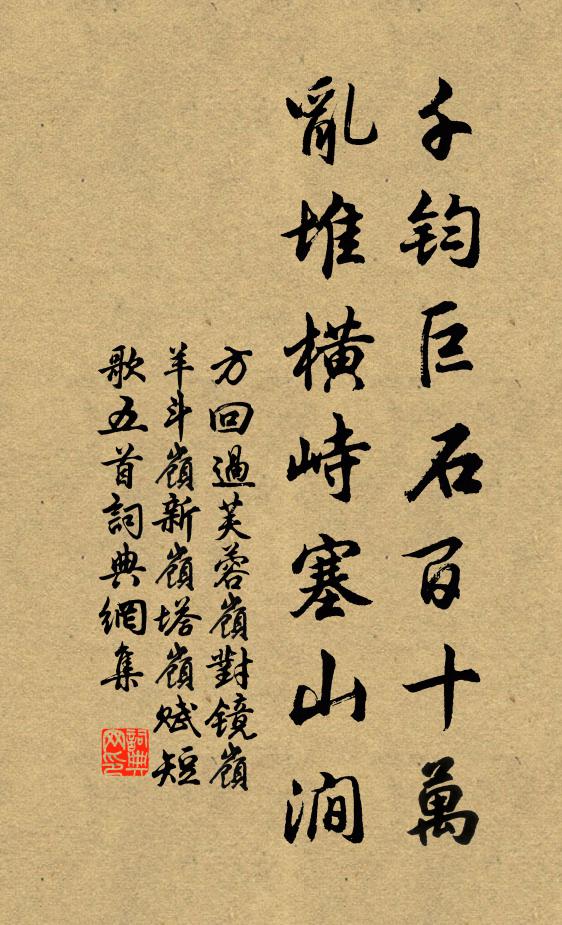 千鈞巨石百十萬
亂堆橫峙塞山澗
方回過芙蓉嶺對镜嶺
羊斗嶺新嶺塔嶺赋短
歌五首詞典網集
詞典
网印